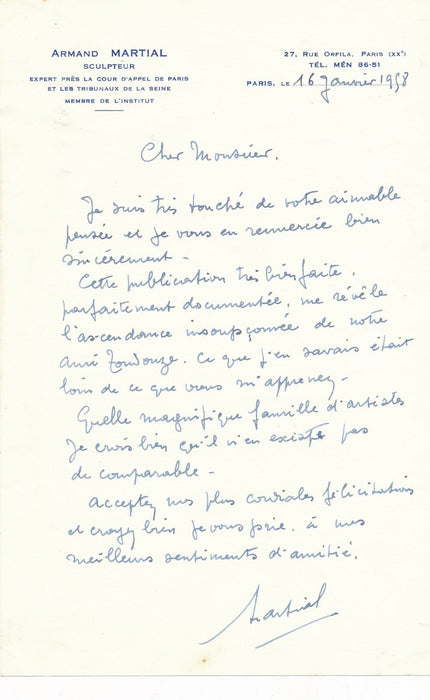 ARMAND MARTIAL
SCULPTEUR
EXPERT PRÈS LA COUR D'APPEL DE PARIS
ET LES TRIBUNAUX DE LA SEINE
MEMBRE DE L'INSTITUT
27, RUE ORFILA, PARIS (XXe)
TÉL. MÉN 86-51
PARIS, LE 16 Janvier 1958
Cher Monsieur.
Je suis très touché de votre aimable
pensée et je vous en remercie bien
sincèrement -
Cette publication très bien faite,
parfaitement documentée, me révèle
l'ascendance insoupçonnée de notre
ami Toudouze. Ce que j'en savais était
loin de ce que vous m'apprenez -
Quelle magnifique famille d'artistes
Je crois bien qu'il n'en existe pas
de comparable -
Acceptez mes plus cordiales félicitations
et croyez bien je vous prie. à mes
meilleurs sentiments d'amitié.
Martial